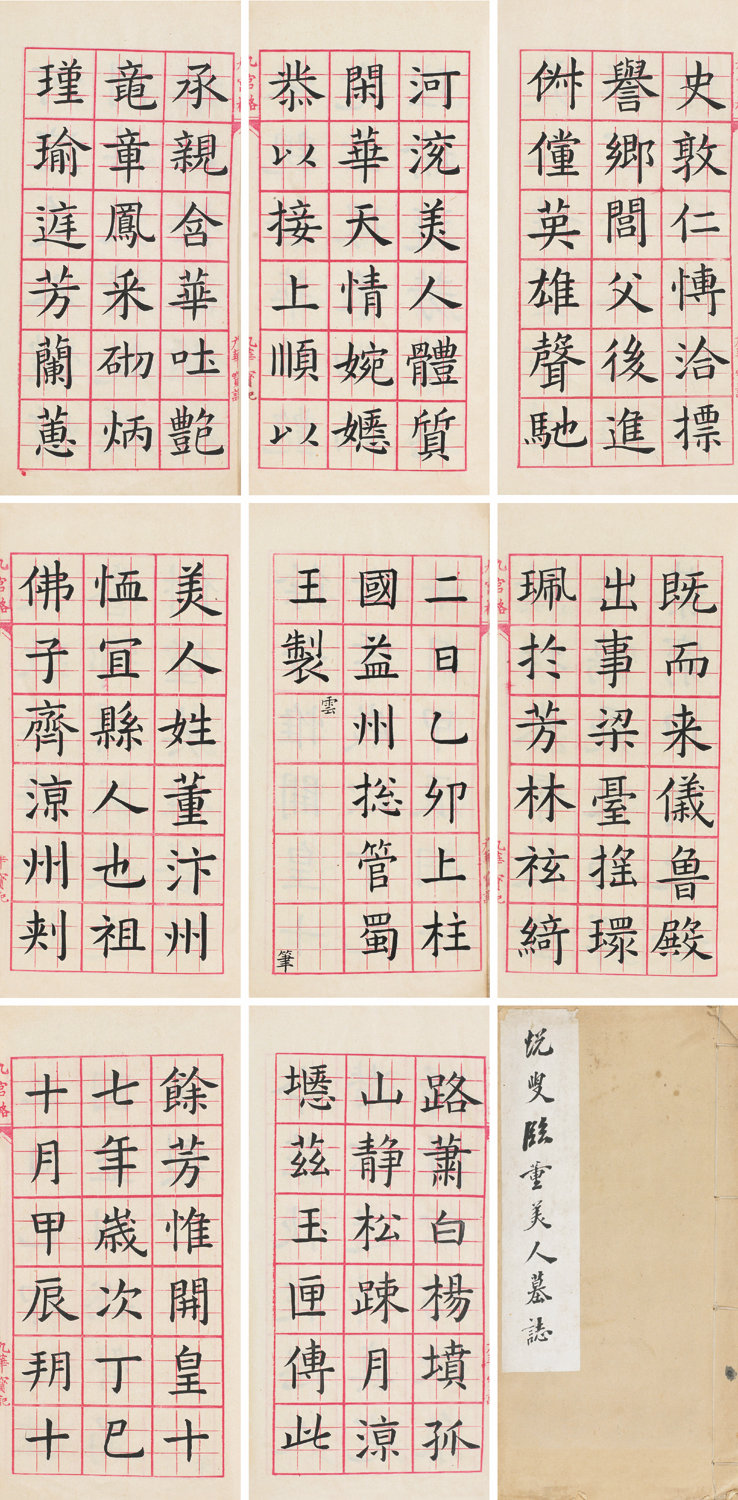 史敦仁愽洽摽
譽鄉閭父後進
俶儻英雄聲馳
河流美人體質
閑華天情婉嫕
恭以接上順以
九宮格
九華寶記
承親含華吐艷
竜章鳳采砌炳
瑾瑜庭芳蘭蕙
既而来儀魯殿
出事梁臺搖環
珮於芳林袨綺
九宮格
九華寶記
二日乙卯上柱
國益州捴管蜀
王製
雲
筆
美人姓董汴州
恤冝縣人也祖
佛子齊涼州刾
九宮格
悦叟臨董美人墓誌
路蕭白楊墳孤
山静松踈月涼
瘞茲玉匣傳此
餘芳惟開皇十
七年歲次丁巳
十月甲辰朔十
九宮格
九華寶記